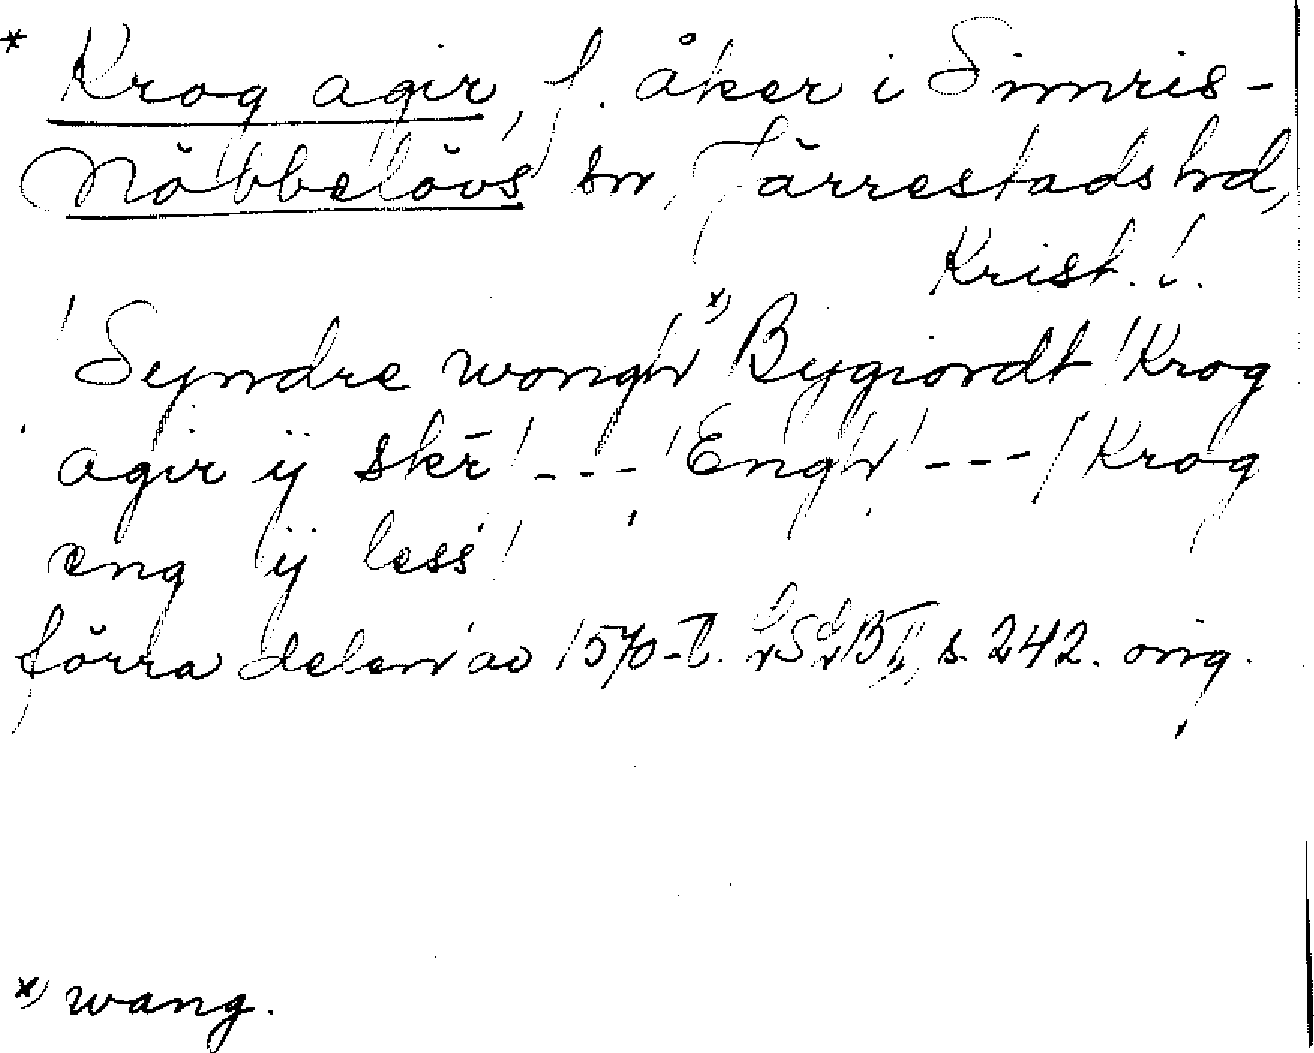 * Krog agir, f. åker i Simris-
Nöbbelövs sn, Järrestads hd,
Krist. l.
'Syndre wongh x) Bygiordt / Krog
agir ij skr' --- 'Engh' --- / Krog
eng ij less'
förra delen av 1570-t. s. 242. orig.
x) wang.